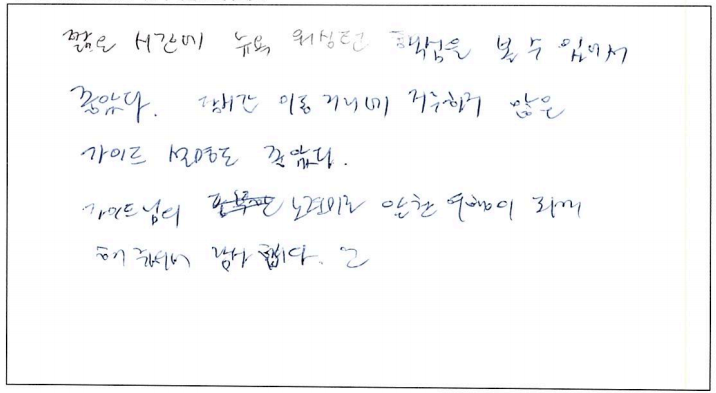 짧은 시간에 뉴욕 워싱턴 핵심을 볼 수 있어서
좋았다. 장시간 이동거리에 지루하지 않은
가이드 설명도 좋았다.
가이드님의 노련미로 알찬 여행이 되게
해 주셔서 감사합니다.